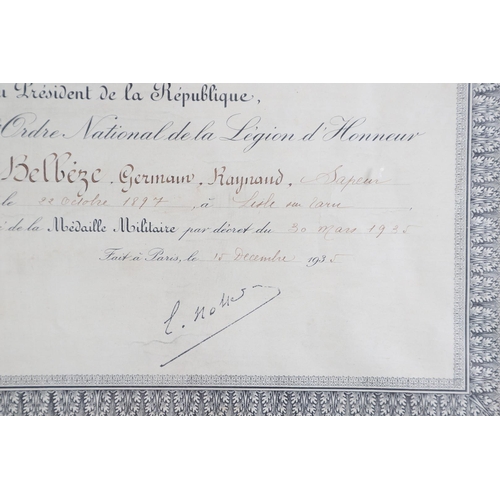 u Président de la République,
'Ordre National de la Légion d'Honneur
Belbèze, Germain, Raynaud, Sapeur
le 22 octobre 1897 à Lisle sur Tarn
é de la Médaille Militaire par décret du 30 mars 1935
Fait à Paris, le 15 décembre 1935